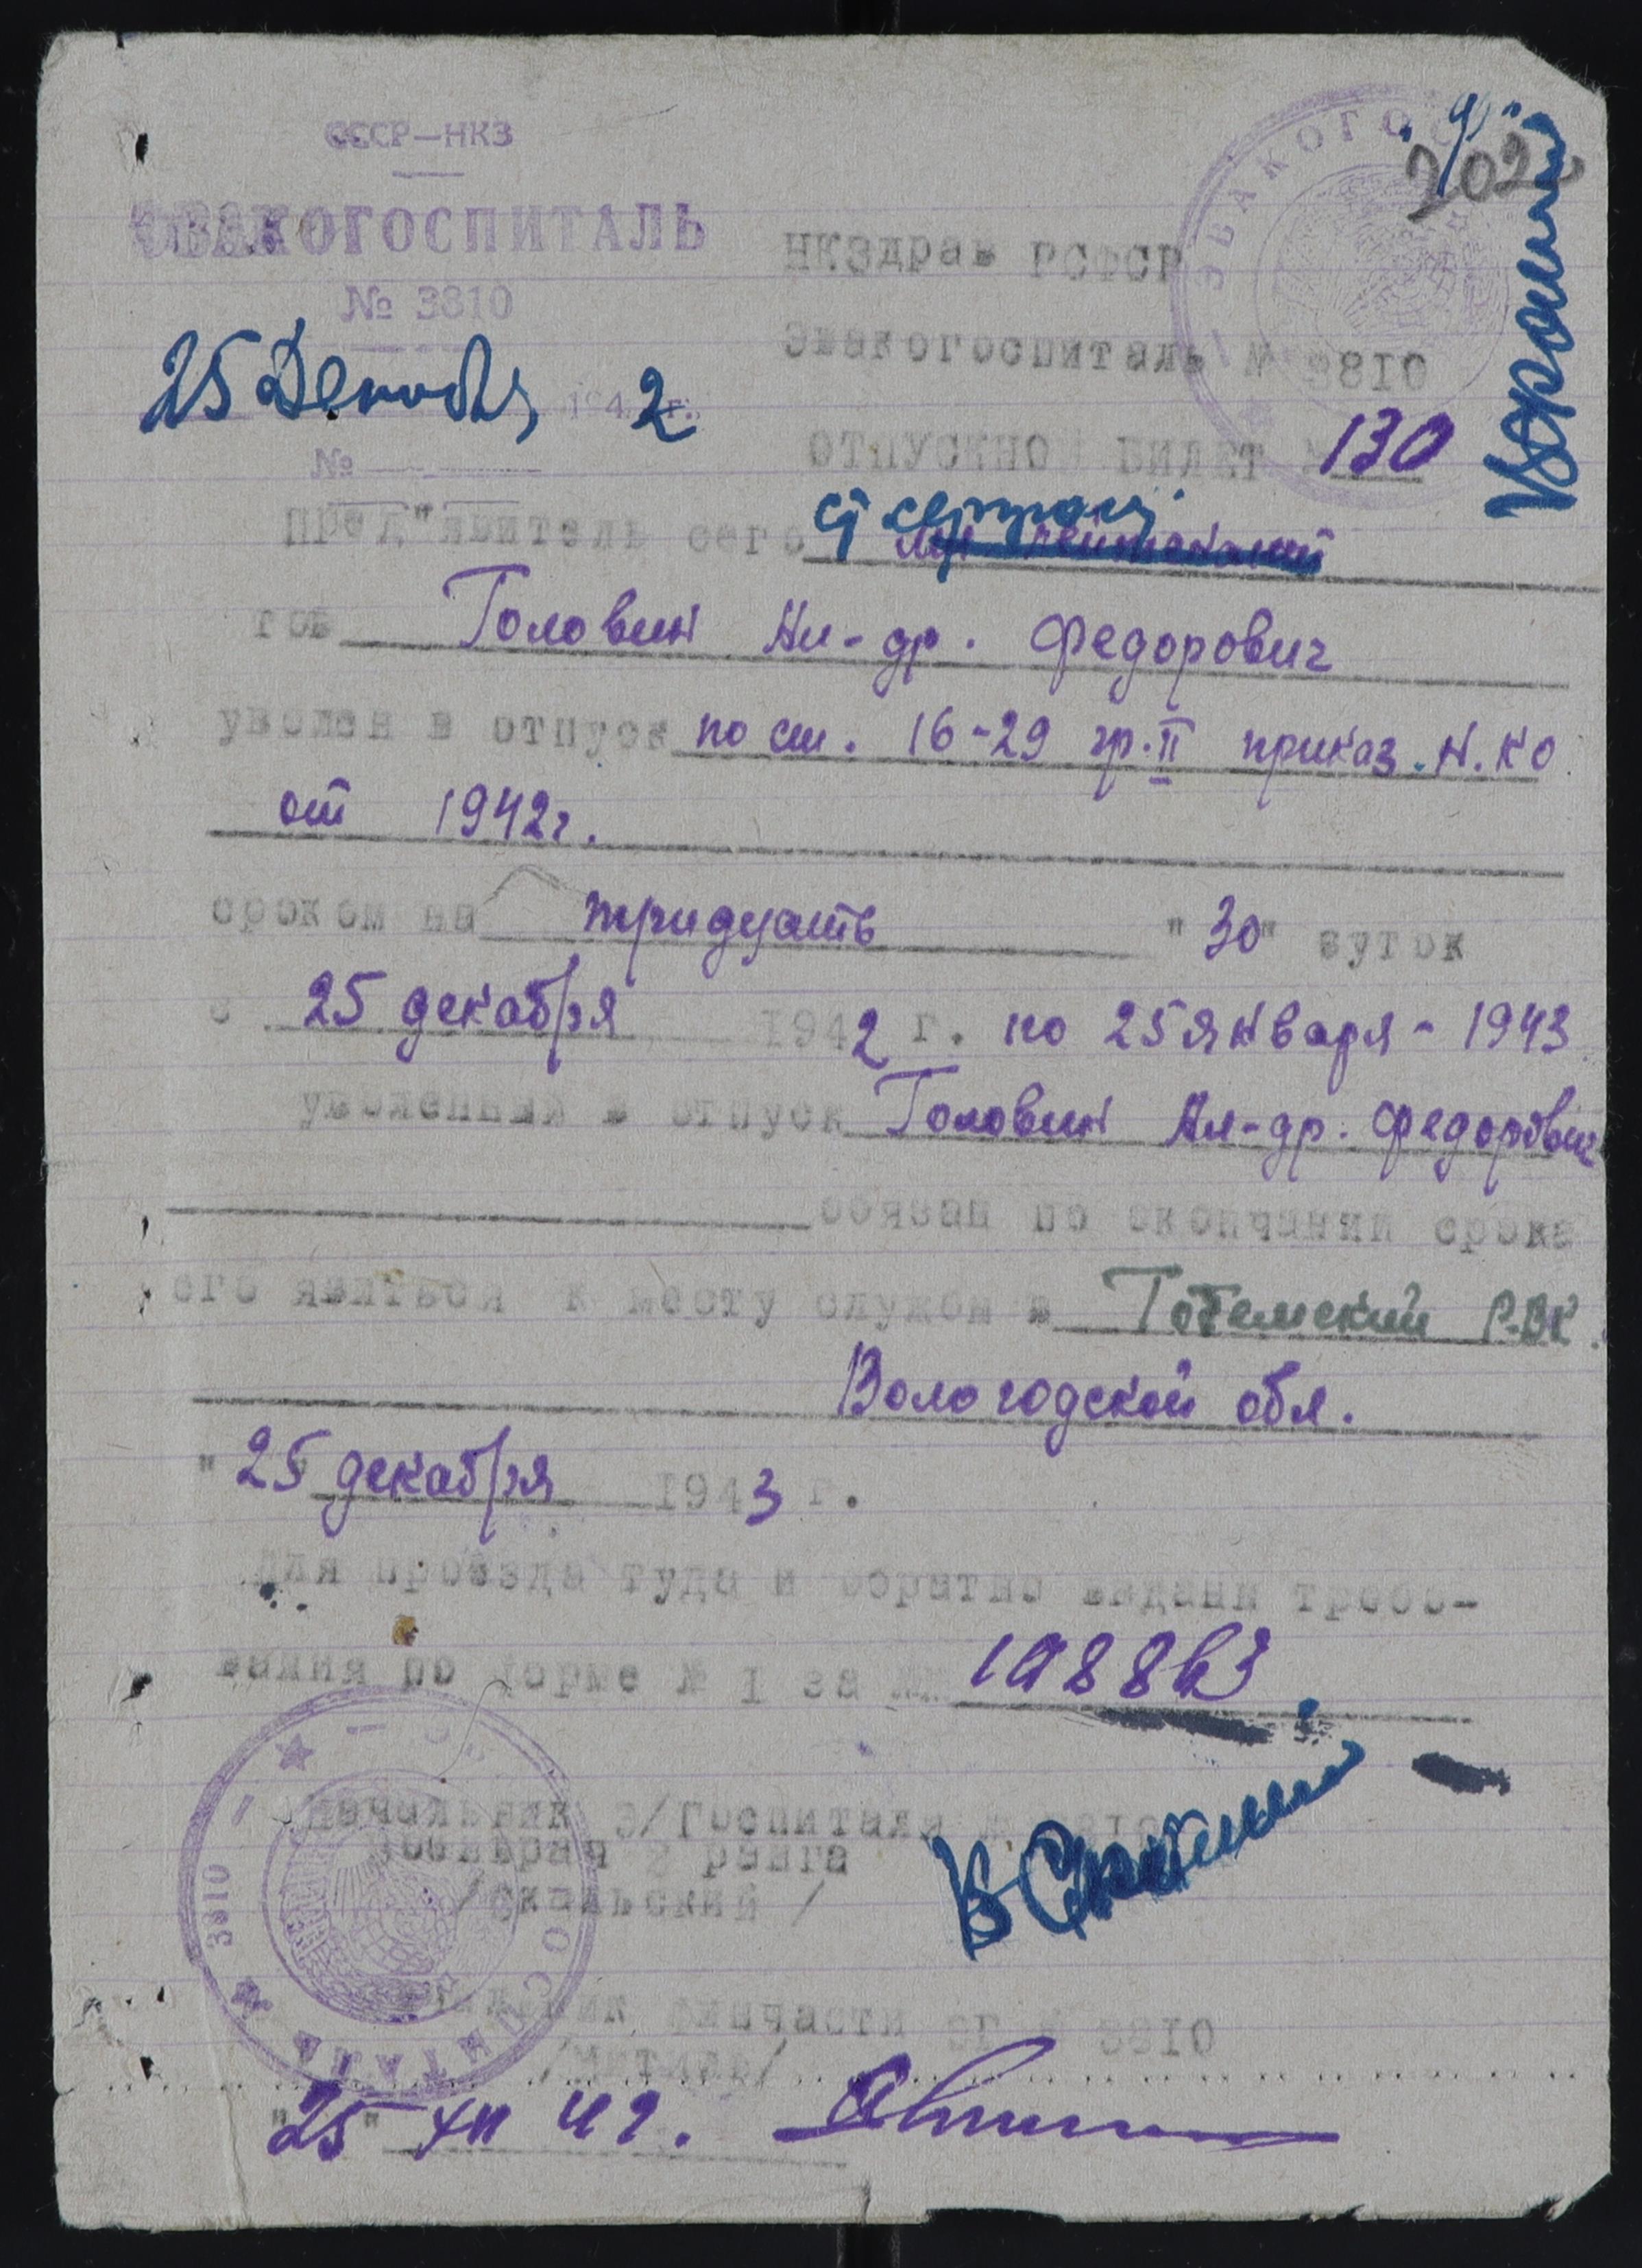 СССР—НКЗ
ЭВАКОГОСПИТАЛЬ
№ 3810
25 Декабря 194 2 г.
№
202
НКЗдрав РСФСР
Эвакогоспиталь № 3810
ОТПУСКНО БИЛЕТ № 130
Пред"явитель сего ст сержант
тов Головин Ал-др. Федорович
уволен в отпуск по ст. 16-29 гр. II приказ. Н.КО
от 1942г.
сроком на тридцать "30" суток
с 25 декабря 1942 г. по 25 января - 1943
уволенный в отпуск Головин Ал-др. Федорович
обязан по окончании срока
его явиться к месту службы в Тотемский Р.ВК.
Вологодской обл.
"25 декабря 1943 г.
Для проезда туда и обратно выданы требо-
вания по форме № 1 за №
Начальник Э/Госпиталя № 3810
Военврач 2 ранга
ЭВАКОГОСПИТАЛЬ 3810
финчасти ЭГ № 3810
"25" XII 42.